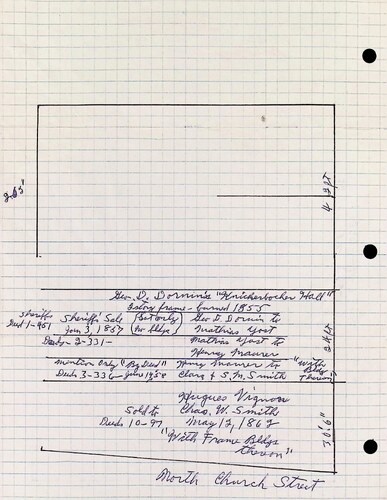 205'
43 ft
Geo. D. Dornin's "Knickerbocker Hall"
3 story frame - burned 1855
Sheriffs
Deed 1-951
Sheriff's Sale
Jan 3, 1857
(Lot only)
(no bldgs)
Geo D. Dornin to
Mathias Yost
Deeds 2-331-
Mathias Yost to
Henry Maurer
mention only "By Deed"
Henry Maurer to
Deeds 3-336- June 1858
Clara & S. M. Smith
"With
Bldg
Thereon"
Hugues Vignow
Sold to
Chas. W. Smith
Deeds 10-97
May 12, 1862
"With Frame Bldgs
thereon"
30'6"
North Church Street